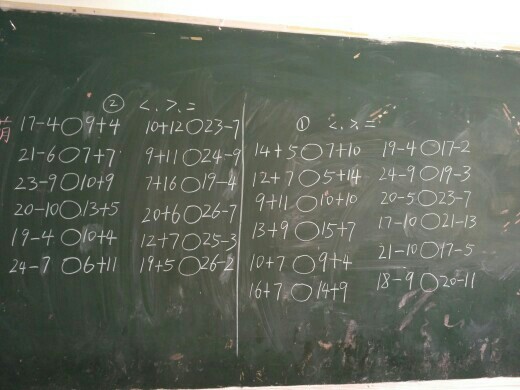 ② <.>.=
17-4○9+4 10+12○23-7
21-6○7+7 9+11○24-9
23-9○10+9 7+16○19-4
20-10○13+5 20+6○26-7
19-4○10+4 12+7○25-3
24-7○6+11 19+5○26-2
① <.>.=
14+5○7+10 19-4○17-2
12+7○5+14 24-9○19-3
9+11○10+10 20-5○23-7
13+9○15+7 17-10○21-13
10+7○9+4 21-10○17-5
16+7○14+9 18-9○20-11